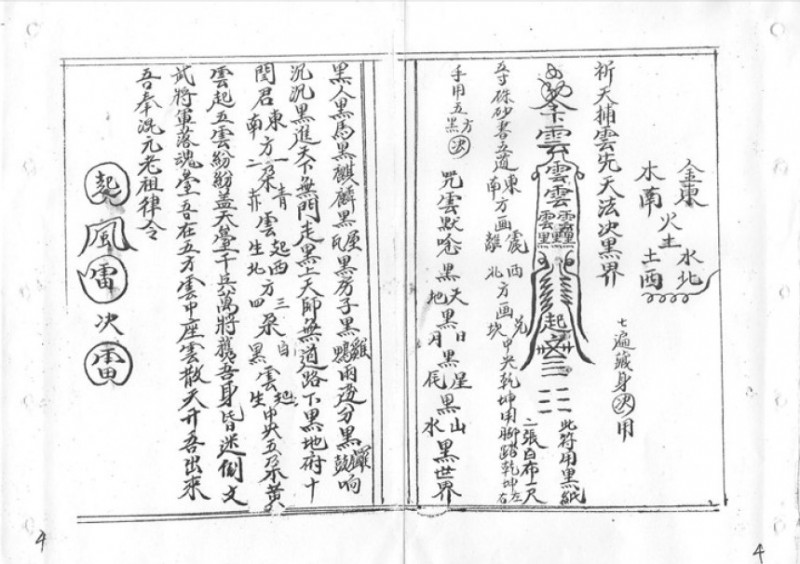 金東
水北
火土
木南
土西
七遍藏身次用
祈天捕雲先天法次黑界
下雲
雲雲
起
此符用黑紙
一張白布一尺
五寸硃砂書五道東南方画震離西北方画兌坎中央乾坤用腳踏乾坤左右
手用五方黑次
咒雲默唸黑天地黑日月黑星辰黑山水黑世界
黑人黑馬黑麒麟黑瓦屋黑房子黑鴨雞兩邊分黑鼓鑼响
沉沉黑進天下無門走黑上天師無道路下黑地府十
閻君東南方一二朵青赤雲起生西北方三四朵白黑雲起生中央五朵黃
雲起五雲紛紛盖天臺千兵萬將護吾身皆迷倒文
武將軍落魂臺吾在五方雲中座雲散天开吾出來
吾奉混元老祖律令
起風雷次雷
4
4